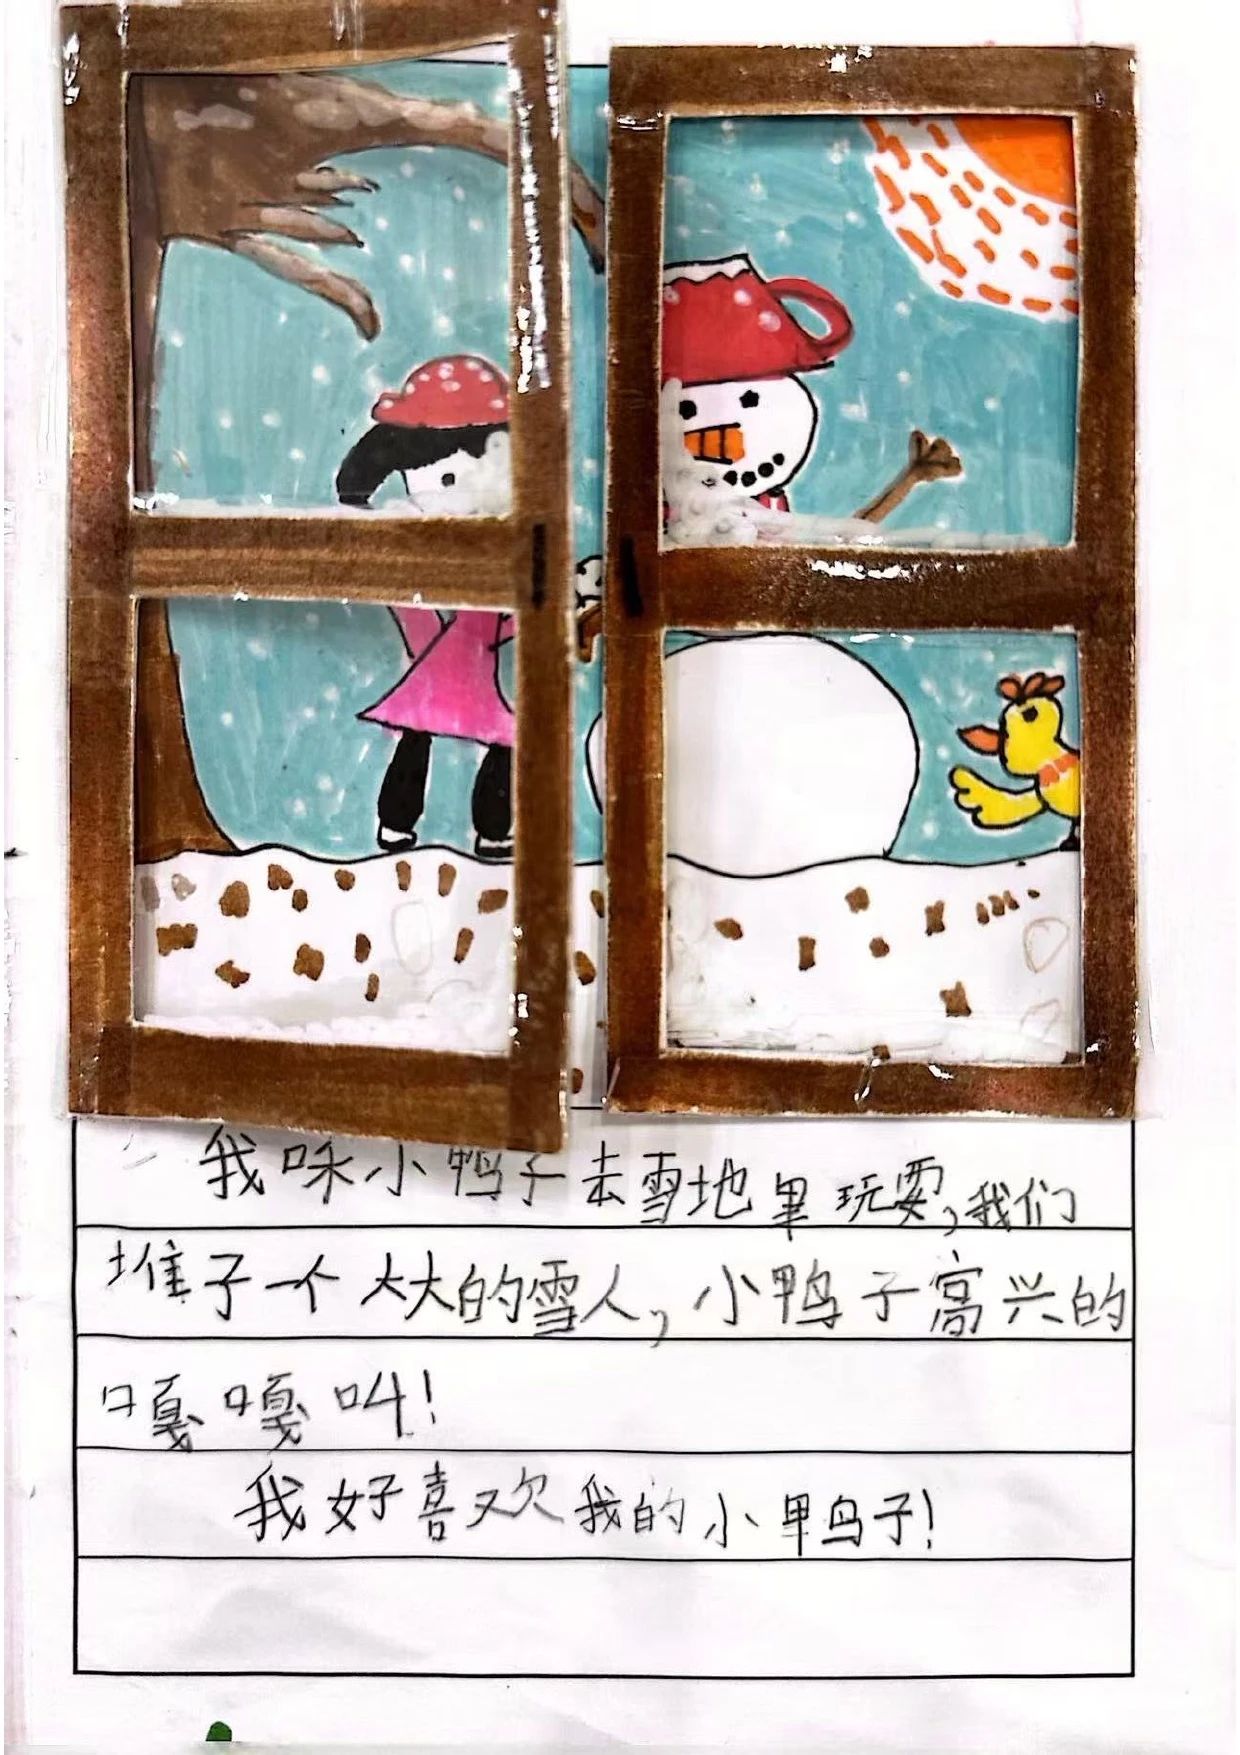 我咊小鸭子去雪地里玩耍,我们
堆子一个大大的雪人,小鸭子高兴的
嘎嘎叫!
我好喜欢我的小鸭子!